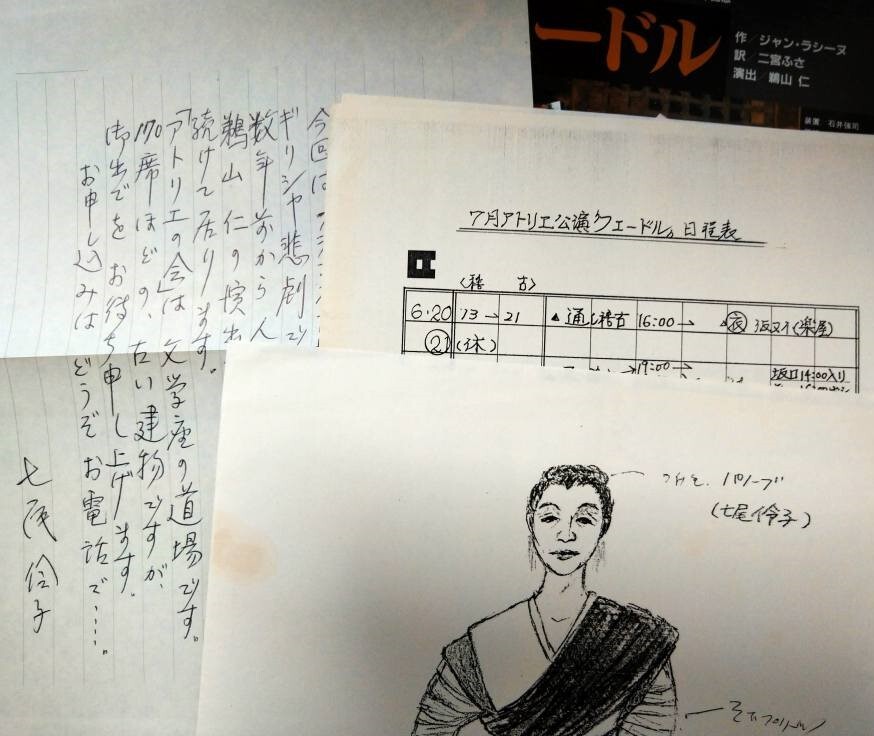 今回は
ギリシャ悲劇で
数年前から人
鵜山 仁の演出
続けて居ります。
「アトリエの会」は 文学座の道場です。
170席ほどの、古い建物ですが、
御出でを お待ち申し上げます。
お申し込みは どうぞ お電話で・・・・。
七尾伶子
ードル
作/ジャン・ラシーヌ
訳/二宮ふさ
演出/鵜山 仁
装置 石井強司
7月アトリエ公演「フェードル」日程表
〈稽 古〉
6.20 13→21 ▲通し稽古 16:00→ 夜 (楽屋)
㉑ (休)
19:00→ 坂口14:00入り
パノープ
(七尾伶子)